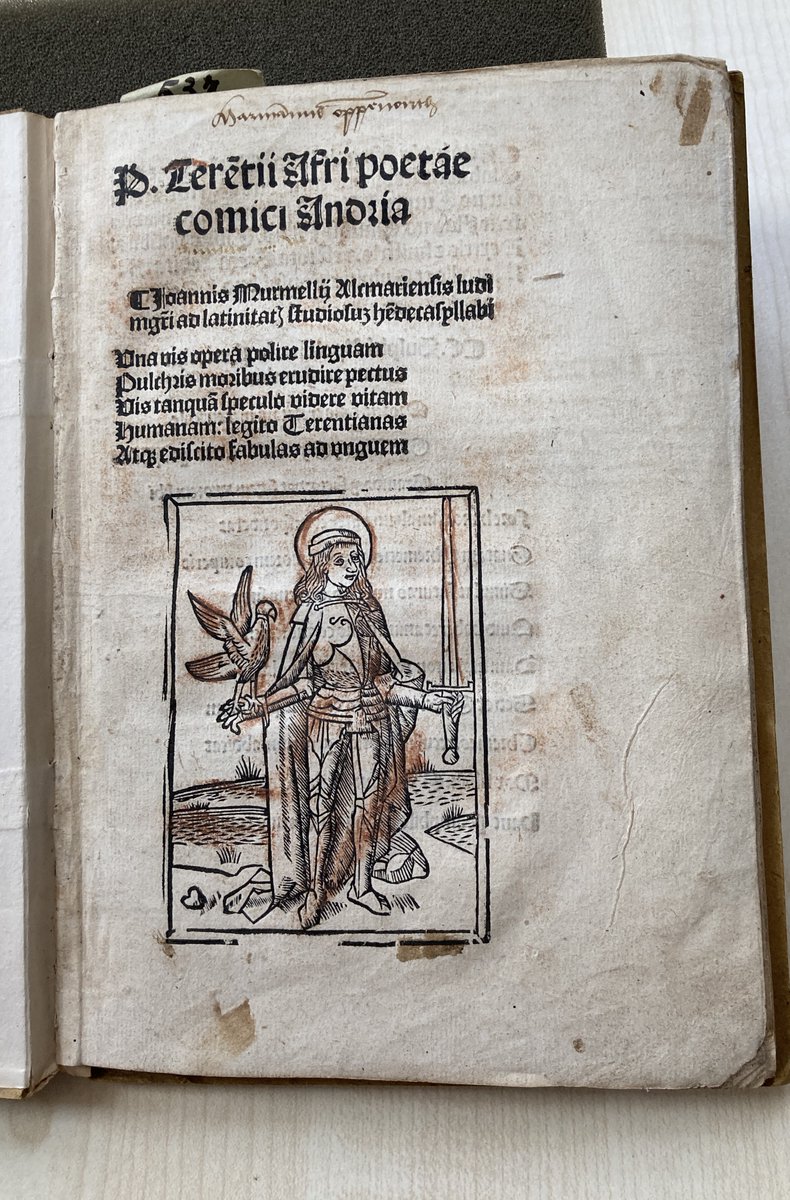 P. Terẽtii Afri poetáe
comici Andria
¶Joannis Murmellij Alcmariensis ludi
mgr̃i ad latinitatꝫ studiosuꝫ hẽdecasyllabi
Una vis opera polire linguam
Pulchris moribus erudire pectus
Vis tanquã speculo videre vitam
Humanam: legito Terentianas
Atqꝫ ediscito fabulas ad vnguem